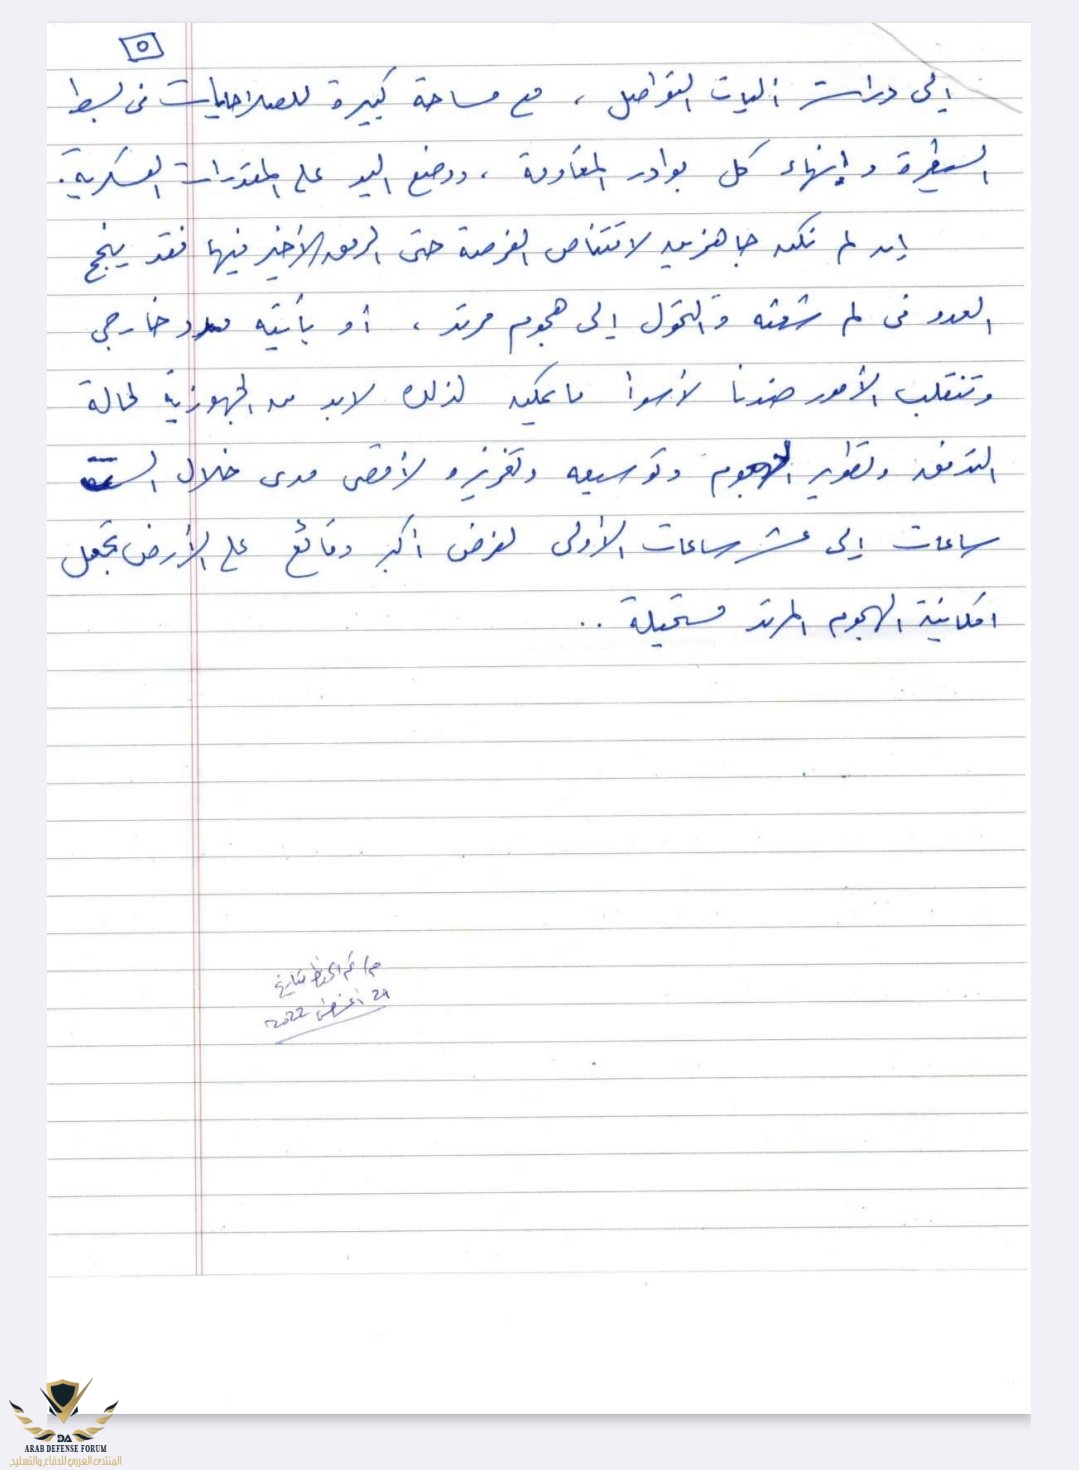 ٥
إلى دراسة آليات التواصل ، مع مساحة كبيرة للصلاحيات في بسط
السيطرة وإنهاء كل بوادر المقاومة ، ووضع اليد على المقدرات العسكرية.
إن لم نكن جاهزين لاقتناص الفرصة حتى الرمق الأخير فيها فقد ينجح
العدو في لم شعثه والتحول إلى هجوم مرتد ، أو يأتيه مدد خارجي
وتنقلب الأمور ضدنا لأسوأ ما يمكن لذلك لابد من الجهوزية لحالة
التدفق وتطوير الهجوم وتوسيعه وتعزيزه لأقصى مدى خلال الستة
ساعات إلى عشر ساعات الأولى لفرض أكبر وقائع على الأرض تجعل
امكانية الهجوم المرتد مستحيلة ..
تم الحفظ بتاريخ
24 أغسطس 2022
DA
ARAB DEFENSE FORUM
المنتدى العربي للدفاع والتسليح